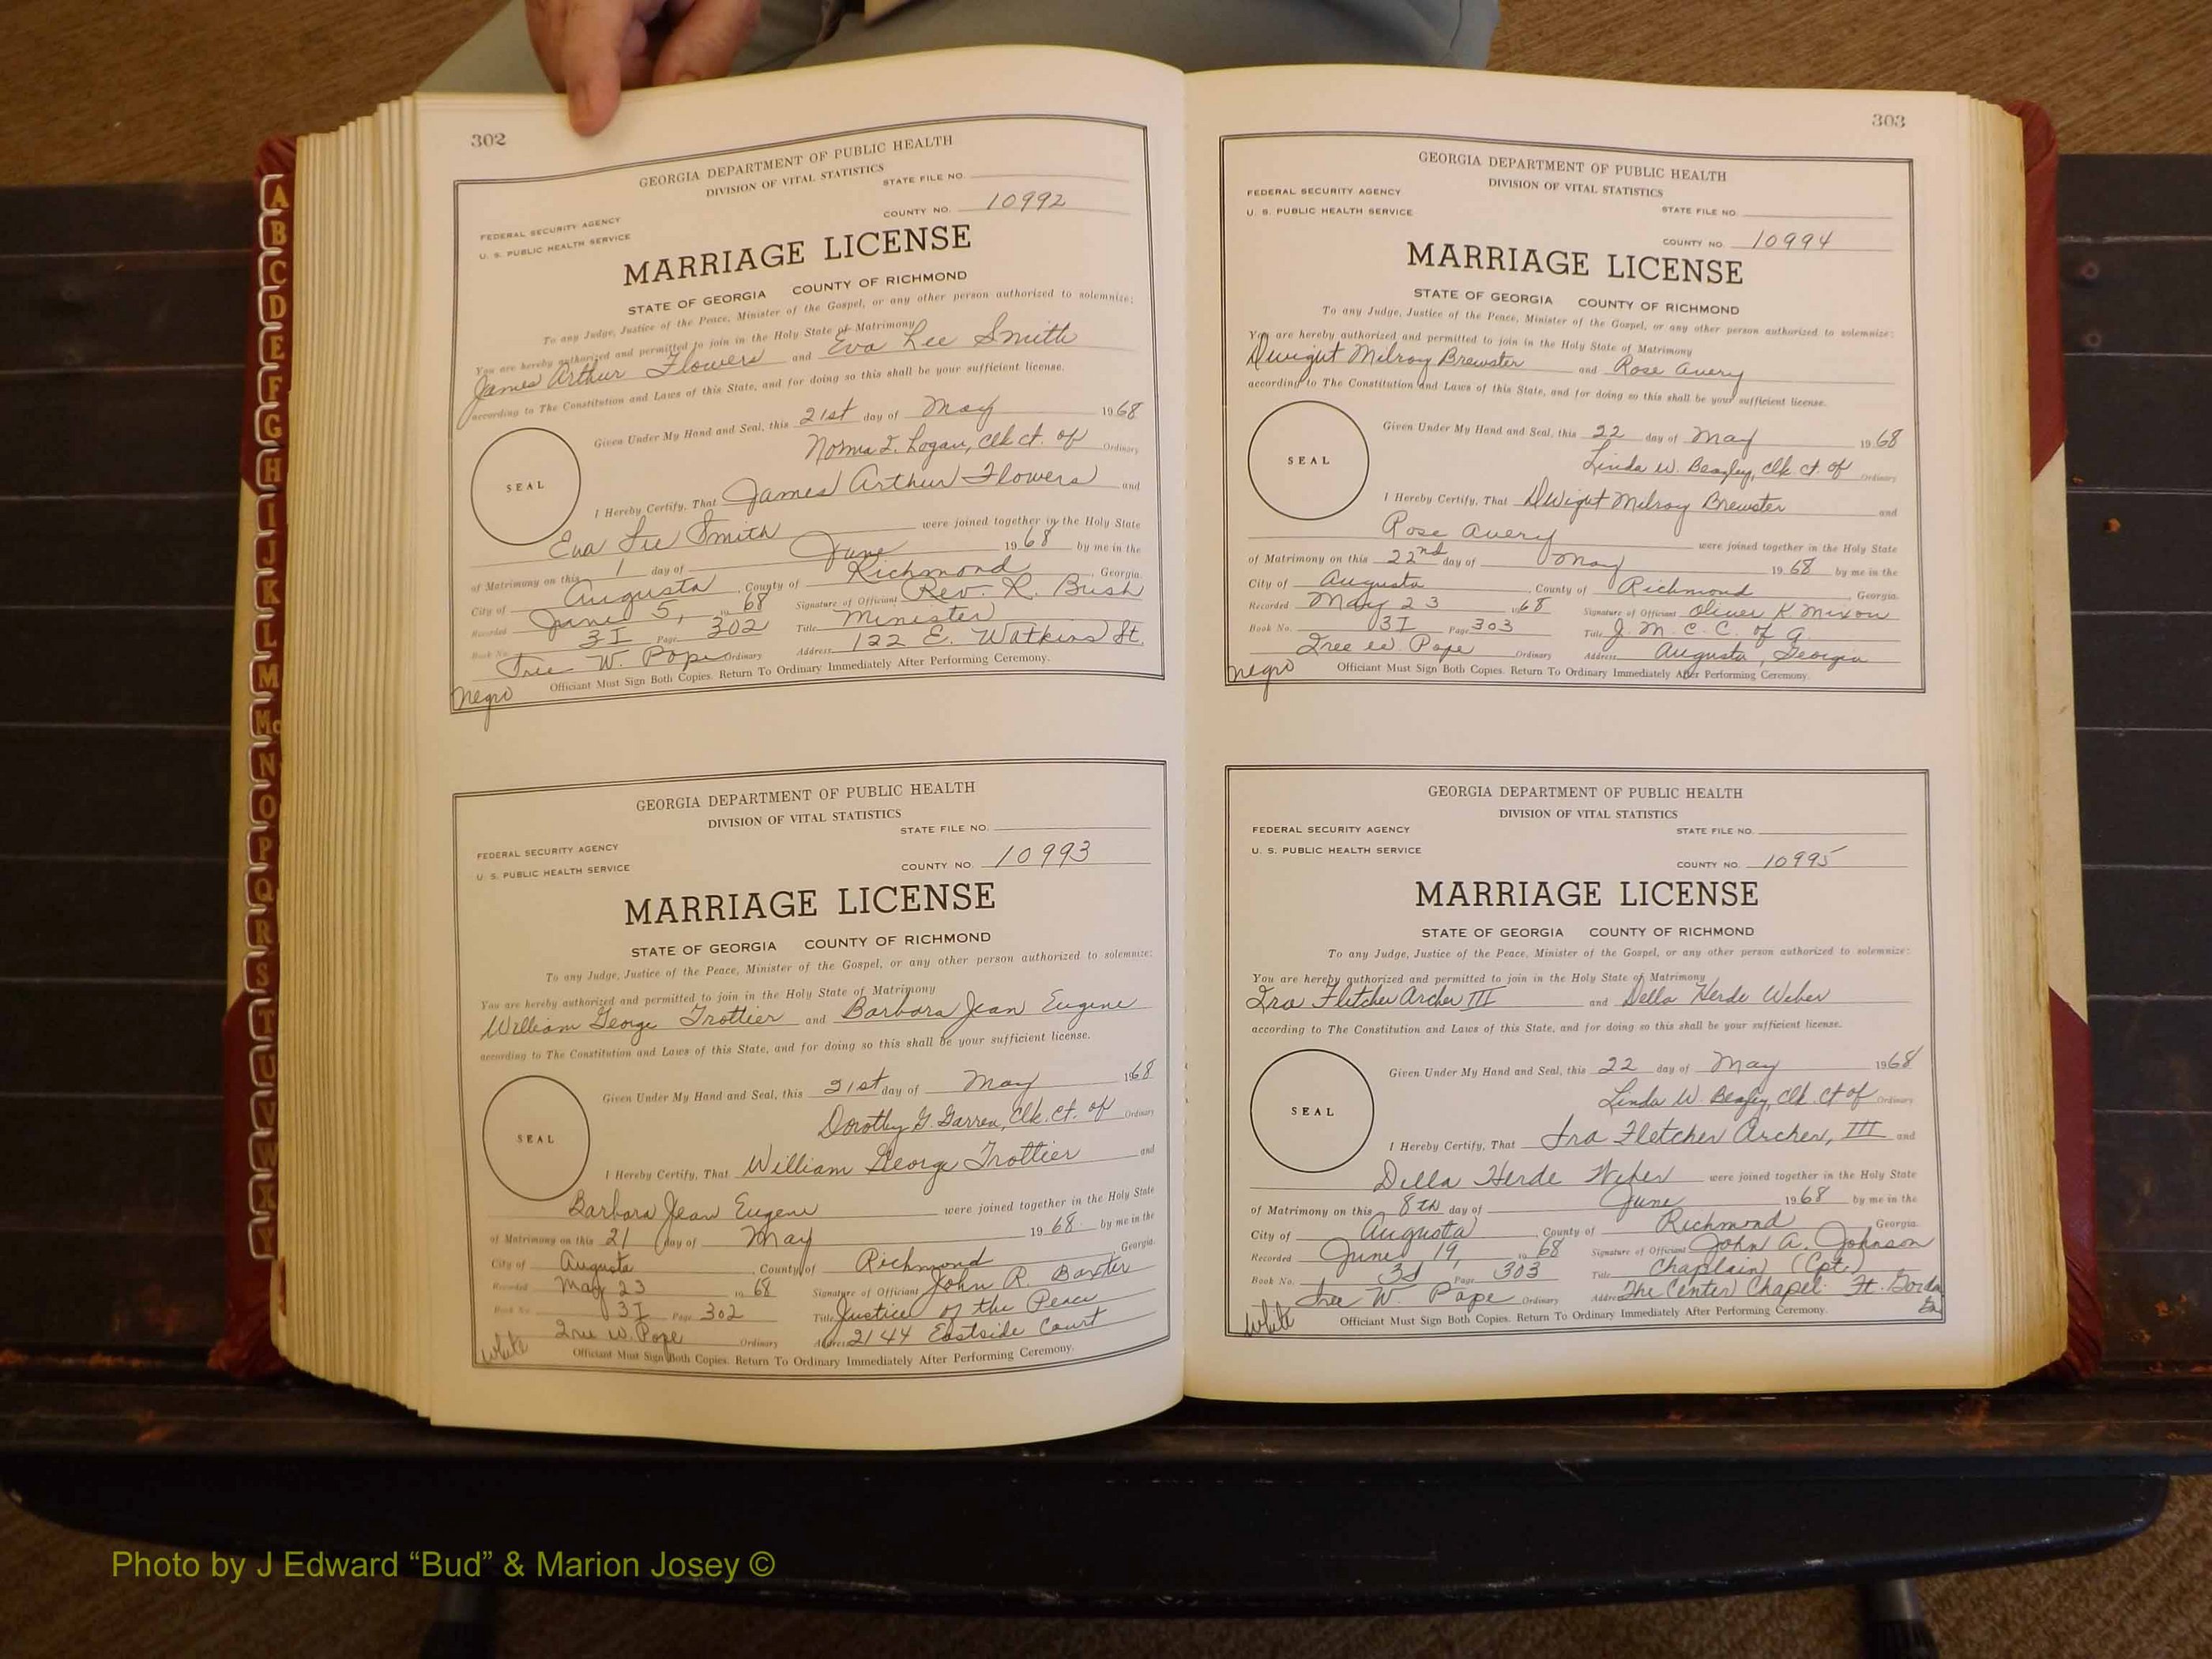 302
GEORGIA DEPARTMENT OF PUBLIC HEALTH
DIVISION OF VITAL STATISTICS
STATE FILE NO.
COUNTY NO. 10992
FEDERAL SECURITY AGENCY
U. S. PUBLIC HEALTH SERVICE
MARRIAGE LICENSE
STATE OF GEORGIA COUNTY OF RICHMOND
To any Judge, Justice of the Peace, Minister of the Gospel, or any other person authorized to solemnize:
You are hereby authorized and permitted to join in the Holy State of Matrimony
James Arthur Flowers and Eva Lee Smith
according to The Constitution and Laws of this State, and for doing so this shall be your sufficient license.
Given Under My Hand and Seal, this 21st day of May 1968
Norma L. Logan, Clk. ct. of Ordinary
SEAL
I Hereby Certify, That James Arthur Flowers and
Eva Lee Smith were joined together in the Holy State
of Matrimony on this 1 day of June 1968 by me in the
City of Augusta, County of Richmond, Georgia.
Recorded June 5, 1968 Signature of Officiant Rev. R. Bush
Book No. 3I Page 302 Title Minister
W. Pope Ordinary Address 122 E. Watkins St.
Officiant Must Sign Both Copies. Return To Ordinary Immediately After Performing Ceremony.
Negro
GEORGIA DEPARTMENT OF PUBLIC HEALTH
DIVISION OF VITAL STATISTICS
STATE FILE NO.
FEDERAL SECURITY AGENCY
COUNTY NO. 10993
U. S. PUBLIC HEALTH SERVICE
MARRIAGE LICENSE
STATE OF GEORGIA COUNTY OF RICHMOND
To any Judge, Justice of the Peace, Minister of the Gospel, or any other person authorized to solemnize:
You are hereby authorized and permitted to join in the Holy State of Matrimony
William George Trottier and Barbara Jean Eugene
according to The Constitution and Laws of this State, and for doing so this shall be your sufficient license.
Given Under My Hand and Seal, this 21st day of May 1968
Dorothy G. Clk. ct. of Ordinary
SEAL
I Hereby Certify, That William George Trottier and
Barbara Jean Eugene were joined together in the Holy State
of Matrimony on this 21 day of May 1968 by me in the
City of Augusta, County of Richmond, Georgia.
Recorded May 23 1968 Signature of Officiant John R. Baxter
Book No. 3I Page 302 Title Justice of the Peace
W. Pope Ordinary Address 2144 Eastside Court
white Officiant Must Sign Both Copies. Return To Ordinary Immediately After Performing Ceremony.
303
GEORGIA DEPARTMENT OF PUBLIC HEALTH
DIVISION OF VITAL STATISTICS
FEDERAL SECURITY AGENCY
U. S. PUBLIC HEALTH SERVICE
STATE FILE NO.
COUNTY NO. 10994
MARRIAGE LICENSE
STATE OF GEORGIA COUNTY OF RICHMOND
To any Judge, Justice of the Peace, Minister of the Gospel, or any other person authorized to solemnize:
You are hereby authorized and permitted to join in the Holy State of Matrimony
Dwight Milroy Brewster and Rose Avery
according to The Constitution and Laws of this State, and for doing so this shall be your sufficient license.
Given Under My Hand and Seal, this 22 day of May 1968
Linda W. Beazley, Clk. ct. of Ordinary
SEAL
I Hereby Certify, That Dwight Milroy Brewster and
Rose Avery were joined together in the Holy State
of Matrimony on this 22nd day of May 1968 by me in the
City of Augusta, County of Richmond, Georgia.
Recorded May 23 1968 Signature of Officiant Oliver K Mixon
Book No. 3I Page 303 Title J. M. C. C. of G.
W. Pope Ordinary Address Augusta, Georgia
Negro Officiant Must Sign Both Copies. Return To Ordinary Immediately After Performing Ceremony.
GEORGIA DEPARTMENT OF PUBLIC HEALTH
DIVISION OF VITAL STATISTICS
FEDERAL SECURITY AGENCY
STATE FILE NO.
U. S. PUBLIC HEALTH SERVICE
COUNTY NO. 10995
MARRIAGE LICENSE
STATE OF GEORGIA COUNTY OF RICHMOND
To any Judge, Justice of the Peace, Minister of the Gospel, or any other person authorized to solemnize:
You are hereby authorized and permitted to join in the Holy State of Matrimony
Ira Fletcher Archer III and Della Herde Weber
according to The Constitution and Laws of this State, and for doing so this shall be your sufficient license.
Given Under My Hand and Seal, this 22 day of May 1968
Linda W. Beazley, Clk. Ct of Ordinary
SEAL
I Hereby Certify, That Ira Fletcher Archer, III and
Della Herde Weber were joined together in the Holy State
of Matrimony on this 8th day of June 1968 by me in the
City of Augusta, County of Richmond, Georgia.
Recorded June 19, 1968 Signature of Officiant John A. Johnson
Book No. 3I Page 303 Title Chaplain (Cpt.)
W. Pope Ordinary Address The Center Chapel Ft. Gordon
Ga
white Officiant Must Sign Both Copies. Return To Ordinary Immediately After Performing Ceremony.
A
B
C
D
E
F
G
H
I
J
K
L
M
Mc
N
O
P
Q
R
S
T
U
V
W
X
Y
Photo by J Edward “Bud” & Marion Josey ©